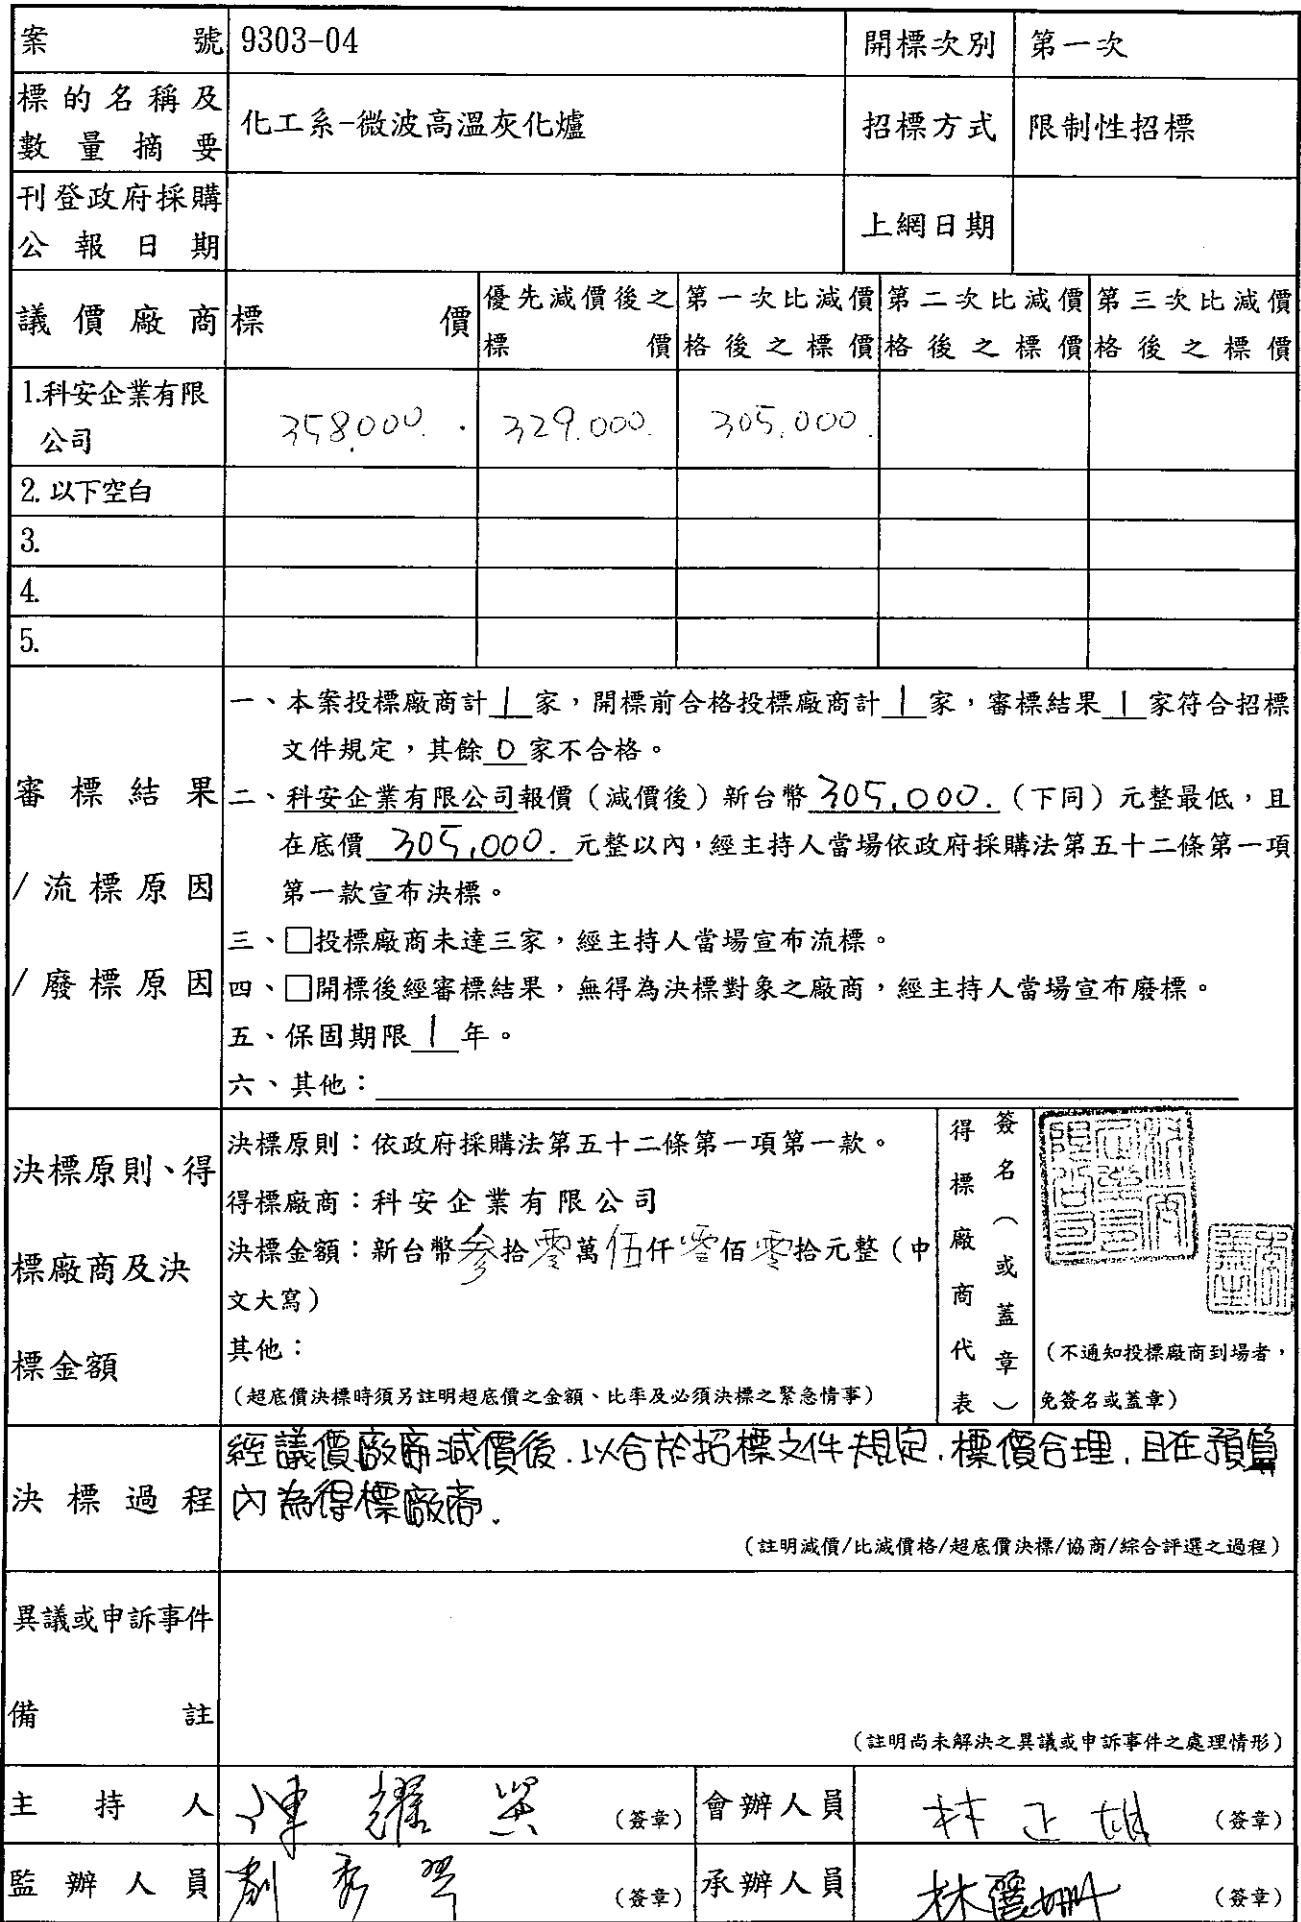 案號 9303-04 開標次別 第一次
標的名稱及
數量摘要 化工系-微波高溫灰化爐 招標方式 限制性招標
刊登政府採購
公報日期 上網日期
議價廠商 標價 優先減價後之標價 第一次比減價格後之標價 第二次比減價格後之標價 第三次比減價格後之標價
1.科安企業有限公司 358,000. 329,000. 305,000.
2.以下空白
3.
4.
5.
審標結果
/流標原因
/廢標原因
一、本案投標廠商計1家,開標前合格投標廠商計1家,審標結果1家符合招標
文件規定,其餘0家不合格。
二、科安企業有限公司報價(減價後)新台幣305,000.(下同)元整最低,且
在底價305,000.元整以內,經主持人當場依政府採購法第五十二條第一項
第一款宣布決標。
三、□投標廠商未達三家,經主持人當場宣布流標。
四、□開標後經審標結果,無得為決標對象之廠商,經主持人當場宣布廢標。
五、保固期限1年。
六、其他:
決標原則、得
標廠商及決
標金額
決標原則:依政府採購法第五十二條第一項第一款。
得標廠商:科安企業有限公司
決標金額:新台幣參拾零萬伍仟零佰零拾元整(中
文大寫)
其他:
(超底價決標時須另註明超底價之金額、比率及必須決標之緊急情事)
得標廠商代表
簽名(或蓋章)
(不通知投標廠商到場者,
免簽名或蓋章)
決標過程
經議價廠商減價後.以合於招標文件規定.標價合理.且在預算
內為得標廠商.
(註明減價/比減價格/超底價決標/協商/綜合評選之過程)
異議或申訴事件
備註
(註明尚未解決之異議或申訴事件之處理情形)
主持人 陳耀 (簽章) 會辦人員 林正雄 (簽章)
監辦人員 劉秀 (簽章) 承辦人員 林 (簽章)